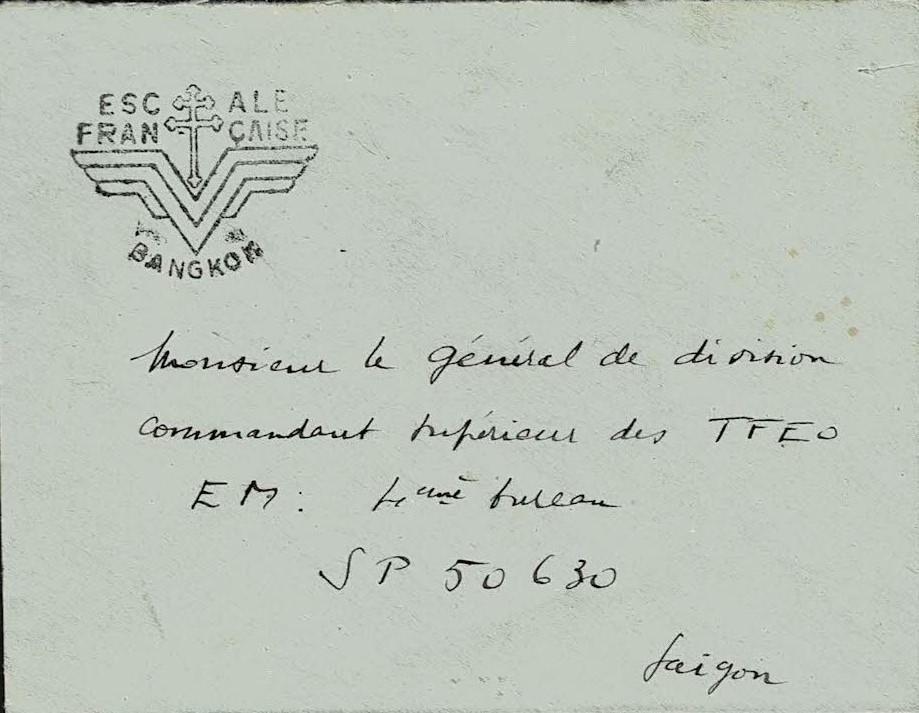 ESCALE
FRANÇAISE
BANGKOK
Monsieur le général de division
commandant supérieur des TFEO
EM: 4ème bureau
SP 50 630
Saigon